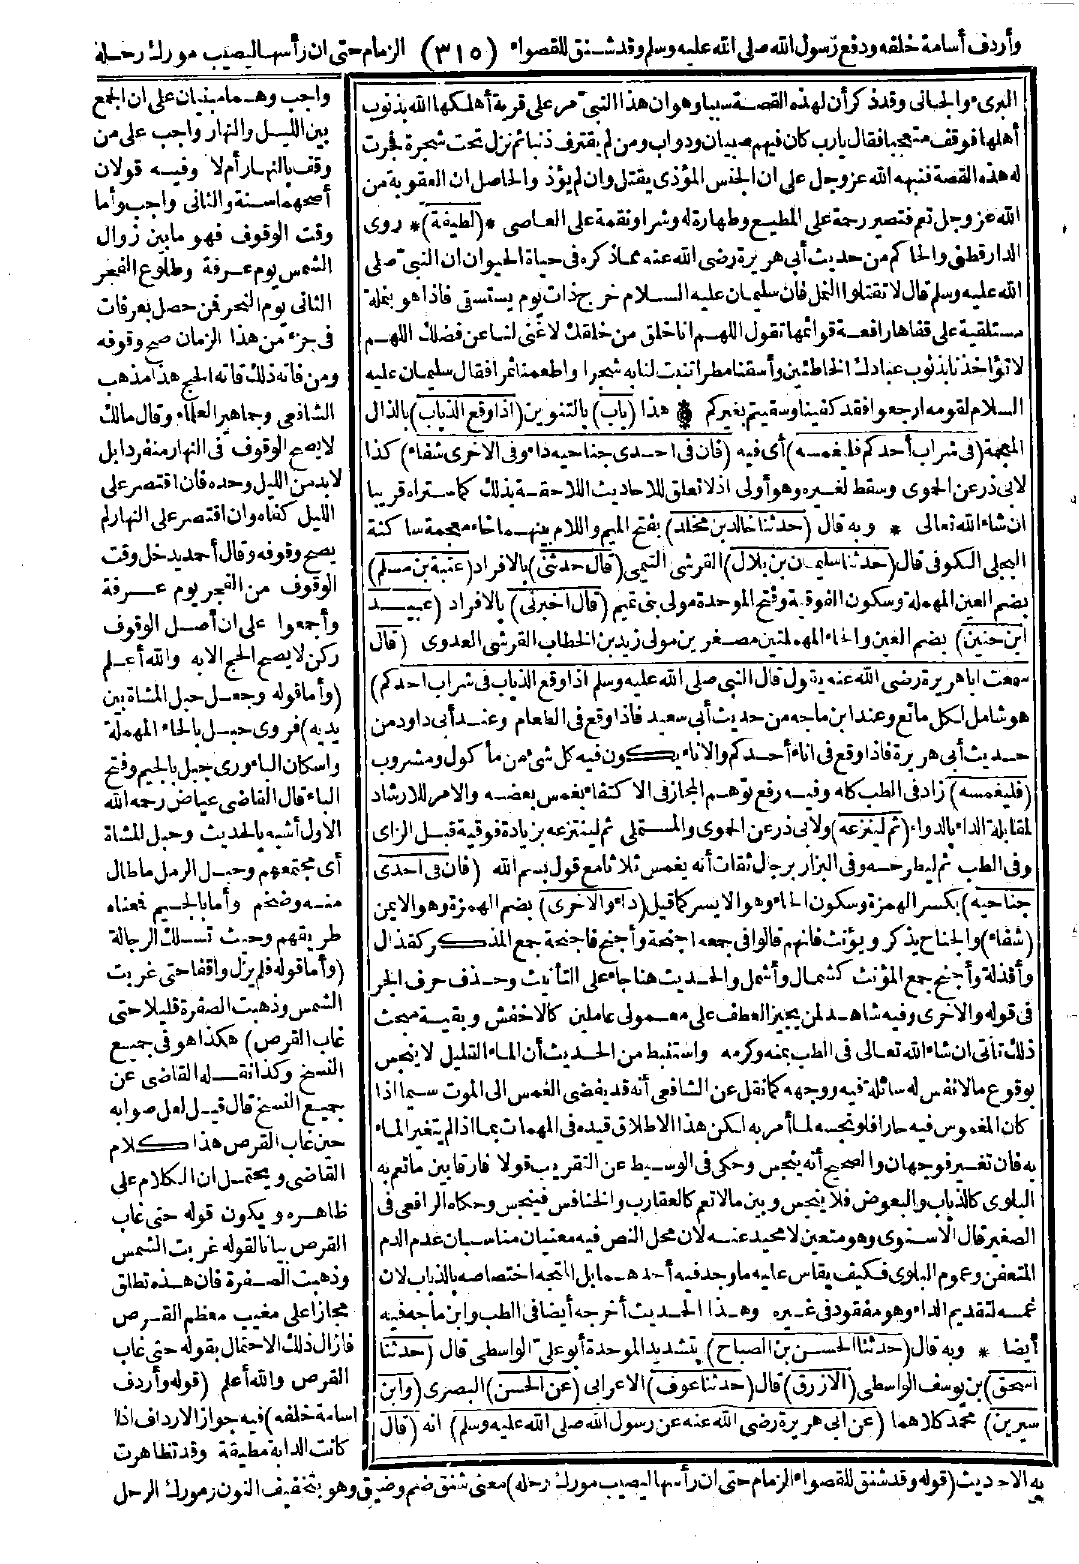 وأردف أسامة خلفه ودفع رسول الله صلى الله عليه وسلم وقد شنق للقصواء (٣١٥) الزمام حتى ان رأسها ليصيب مورك رحله
البرىء والجانى وقد ذكر أن لهذه القصة سببا وهو ان هذا النبى مر على قرية أهلكها الله بذنوب
أهلها فوقف متعجبا فقال يارب كان فيهم صبيان ودواب ومن لم يقترف ذنبا ثم نزل تحت شجرة فجرت
له هذه القصة فنبهه الله عز وجل على ان الجنس المؤذى يقتل وان لم يؤذ والحاصل ان العقوبة من
الله عز وجل تعم فتصير رحمة على المطيع وطهارة له وشرا ونقمة على العاصى * (لطيفة) * روى
الدارقطنى والحاكم من حديث أبى هريرة رضى الله عنه مما ذكره فى حياة الحيوان ان النبى صلى
الله عليه وسلم قال لا تقتلوا النمل فان سليمان عليه السلام خرج ذات يوم يستسقى فاذا هو بنملة
مستلقية على قفاها رافعة قوائمها تقول اللهم انا خلق من خلقك لا غنى لنا عن فضلك اللهم
لا تؤاخذنا بذنوب عبادك الخاطئين وأسقنا مطرا تنبت لنا به شجرا واطعمنا ثمرا فقال سليمان عليه
السلام لقومه ارجعوا فقد كفينا وسقيتم بغيركم هذا (باب) بالتنوين (اذا وقع الذباب) بالذال
المعجمة (فى شراب أحدكم فليغمسه) أى فيه (فان فى احدى جناحيه داء وفى الاخرى شفاء) كذا
لابى ذر عن الحموى وسقط لغيره وهو أولى اذ لا تعلق للاحاديث اللاحقة بذلك كما ستراه قريبا
ان شاء الله تعالى * وبه قال (حدثنا خالد بن مخلد) بفتح الميم واللام بينهما خاء معجمة ساكنة
البجلى الكوفى قال (حدثنا سليمان بن بلال) القرشى التيمى (قال حدثنى) بالافراد (عتبة بن مسلم)
بضم العين المهملة وسكون الفوقية وفتح الموحدة مولى بنى تميم (قال اخبرنى) بالافراد (عبيد
ابن حنين) بضم العين والحاء المهملتين مصغرين مولى زيد بن الخطاب القرشى العدوى (قال
سمعت اباهريرة رضى الله عنه يقول قال النبى صلى الله عليه وسلم اذا وقع الذباب فى شراب احدكم)
هو شامل لكل مائع وعند ابن ماجه من حديث أبى سعيد فاذا وقع فى الطعام وعند أبى داود من
حديث أبى هريرة فاذا وقع فى اناء أحدكم والاناء يكون فيه كل شئ من مأكول ومشروب
(فليغمسه) زاد فى الطب كله وفيه رفع توهم المجاز فى الاكتفاء بغمس بعضه والامر للارشاد
لمقابلة الداء بالدواء (ثم لينزعه) ولابى ذر عن الحموى والمستملى ثم لينتزعه بزيادة فوقية قبل الزاى
وفى الطب ثم ليطرحه وفى البزار برجال ثقات أنه يغمس ثلاثا مع قول بسم الله (فان فى احدى
جناحيه) بكسر الهمزة وسكون الحاء وهو الايسر كما قيل (داء والاخرى) بضم الهمزة وهو الايمن
(شفاء) والجناح يذكر ويؤنث فانهم قالوا فى جمعه اجنحة وأجنح فاجنحة جمع المذكر كقذال
وأقذلة وأجنح جمع المؤنث كشمال وأشمل والحديث هنا جاء على التأنيث وحذف حرف الجر
فى قوله والاخرى وفيه شاهد لمن يجيز العطف على معمولى عاملين كالاخفش وبقية مبحث
ذلك تأتى ان شاء الله تعالى فى الطب بمنه وكرمه واستنبط من الحديث أن الماء القليل لا ينجس
بوقوع مالا نفس له سائلة فيه ووجهه كما نقل عن الشافعى أنه قد يفضى الغمس الى الموت سيما اذا
كان المغموس فيه حارا فلو نجسه لما أمر به لكن هذا الاطلاق قيده فى المهمات بما اذا لم يتغير الماء
به فان تغير فوجهان والصحيح أنه ينجس وحكى فى الوسيط عن التقريب قولا فارقا بين ما تعم به
البلوى كالذباب والبعوض فلا ينجس وبين مالا تعم كالعقارب والخنافس فينجس وحكاه الرافعى فى
الصغير قال الاسنوى وهو متعين لا محيد عنه لان محل النص فيه معنيان مناسبان عدم الدم
المتعفن وعموم البلوى فكيف يقاس عليه ما وجد فيه أحدهما بل المتجه اختصاصه بالذباب لان
غمسه لتقديم الداء وهو مفقود فى غيره وهذا الحديث أخرجه أيضا فى الطب وابن ماجه فيه
أيضا * وبه قال (حدثنا الحسن بن الصباح) بتشديد الموحدة أبو على الواسطى قال (حدثنا
اسحق) بن يوسف الواسطى (الازرق) قال (حدثنا عوف) الاعرابى (عن الحسن) البصرى (وابن
سيرين) محمد كلاهما (عن ابى هريرة رضى الله عنه عن رسول الله صلى الله عليه وسلم) انه (قال
واجب وهما مبنيان على ان الجمع
بين الليل والنهار واجب على من
وقف بالنهار أم لا وفيه قولان
أصحهما سنة والثانى واجب وأما
وقت الوقوف فهو ما بين زوال
الشمس يوم عرفة وطلوع الفجر
الثانى يوم النحر فمن حصل بعرفات
فى جزء من هذا الزمان صح وقوفه
ومن فاته ذلك فاته الحج هذا مذهب
الشافعى وجماهير العلماء وقال مالك
لا يصح الوقوف فى النهار منفردا بل
لا بد من الليل وحده فان اقتصر على
الليل كفاه وان اقتصر على النهار لم
يصح وقوفه وقال أحمد يدخل وقت
الوقوف من الفجر يوم عرفة
وأجمعوا على ان أصل الوقوف
ركن لا يصح الحج الا به والله أعلم
(وأما قوله وجعل حبل المشاة بين
يديه) فروى حبل بالحاء المهملة
واسكان الباء وروى جبل بالجيم وفتح
الباء قال القاضى عياض رحمه الله
الاول أشبه بالحديث وحبل المشاة
أى مجتمعهم وحبل الرمل ما طال
منه وضخم وأما بالجيم فمعناه
طريقهم وحيث تسلك الرجالة
(وأما قوله فلم يزل واقفا حتى غربت
الشمس وذهبت الصفرة قليلا حتى
غاب القرص) هكذا هو فى جميع
النسخ وكذا نقله القاضى عن
جميع النسخ قال قيل لعل صوابه
حين غاب القرص هذا كلام
القاضى ويحتمل ان الكلام على
ظاهره ويكون قوله حتى غاب
القرص بيانا لقوله غربت الشمس
وذهبت الصفرة فان هذه تطلق
مجازا على مغيب معظم القرص
فازال ذلك الاحتمال بقوله حتى غاب
القرص والله أعلم (قوله وأردف
اسامة خلفه) فيه جواز الارداف اذا
كانت الدابة مطيقة وقد تظاهرت
به الاحاديث (قوله وقد شنق للقصواء الزمام حتى ان رأسها ليصيب مورك رحله) معنى شنق ضم وضيق وهو بتخفيف النون ومورك الرحل